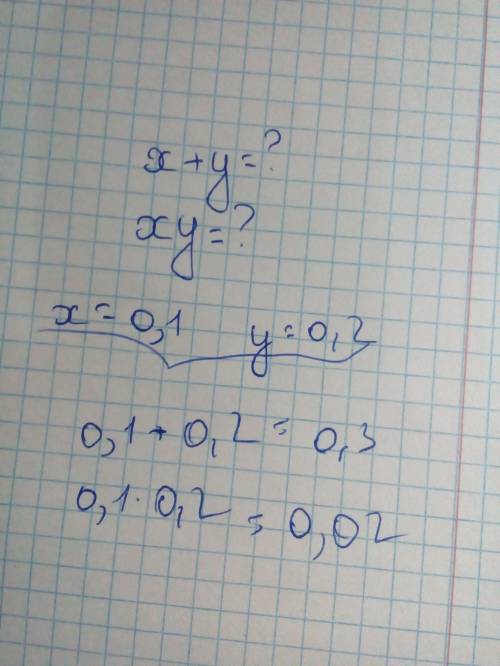 x+y=?
xy=?
x=0,1 y=0,2
0,1+0,2=0,3
0,1·0,2=0,02